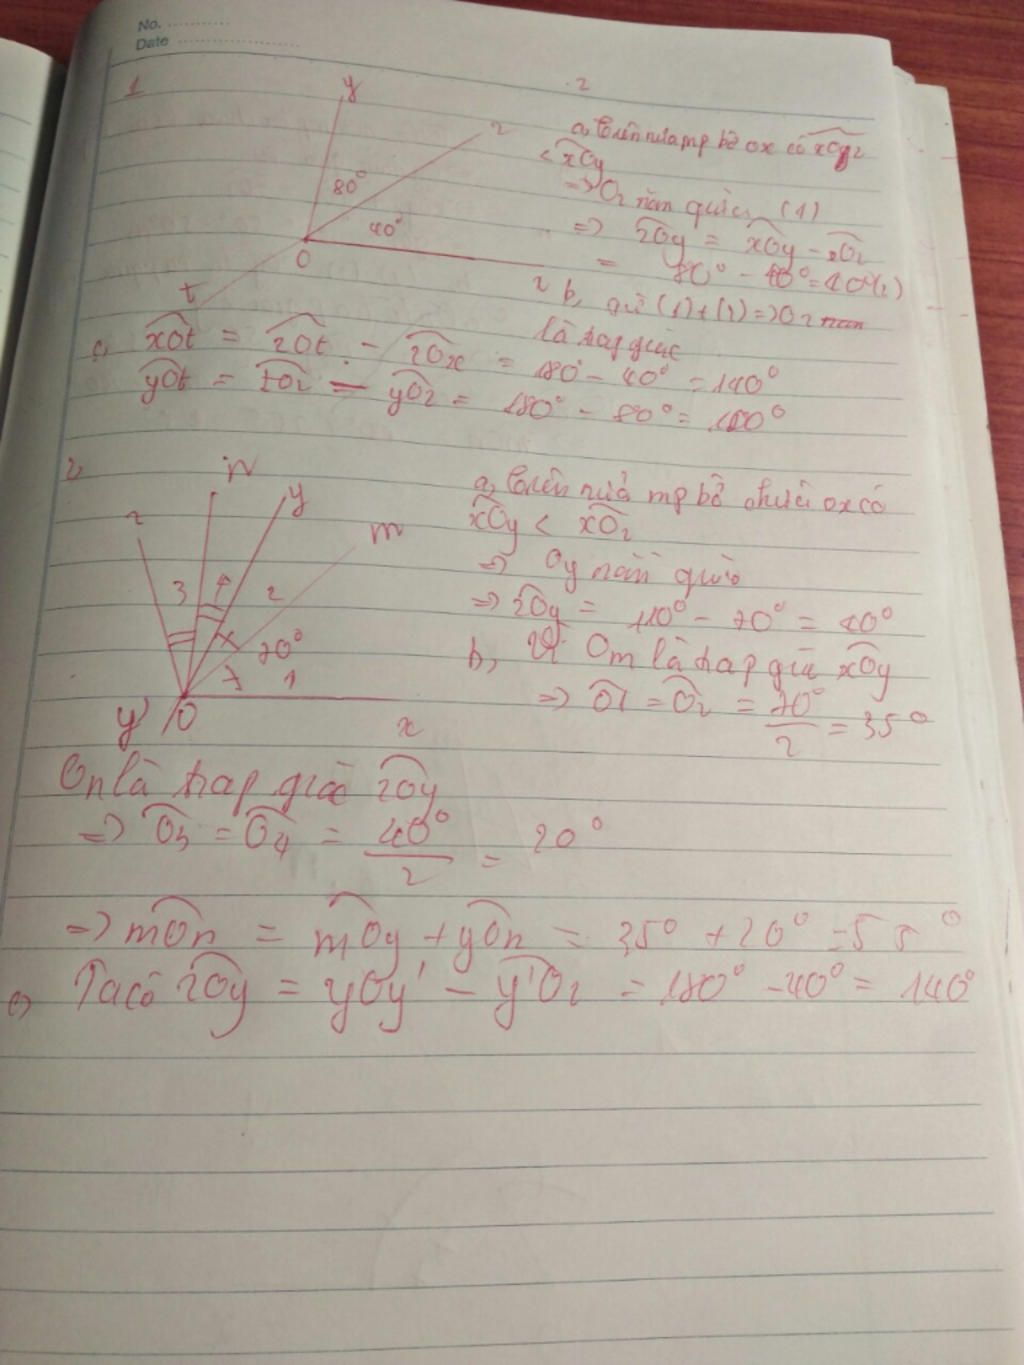 No. ............
Date ............
1
y
z
80°
40°
O
t
a, trên nửa mp bờ ox có xOz
< xOy
=> Oz nằm giữa (1)
=> zOy = xOy - xOz
= 80° - 40° = 40° (2)
b, từ (1) + (2) => Oz
là tia p giác
c, xOt = zOt - zOx = 180° - 40° = 140°
yOt = tOz - yOz = 180° - 80° = 100°
2,
z
N
y
m
3
4
2
70°
1
y'
O
x
a, trên nửa mp bờ chứa ox có
xOy < xOz
=> Oy nằm giữa
=> zOy = 110° - 70° = 40°
b, Vì Om là tia p giác xOy
=> O1 = O2 = 70°/2 = 35°
On là tia p giác zOy
=> O3 = O4 = 40°/2 = 20°
=> mOn = mOy + yOn = 35° + 20° = 55°
c) Ta có zOy = yOy' - y'Oz = 180° - 40° = 140°